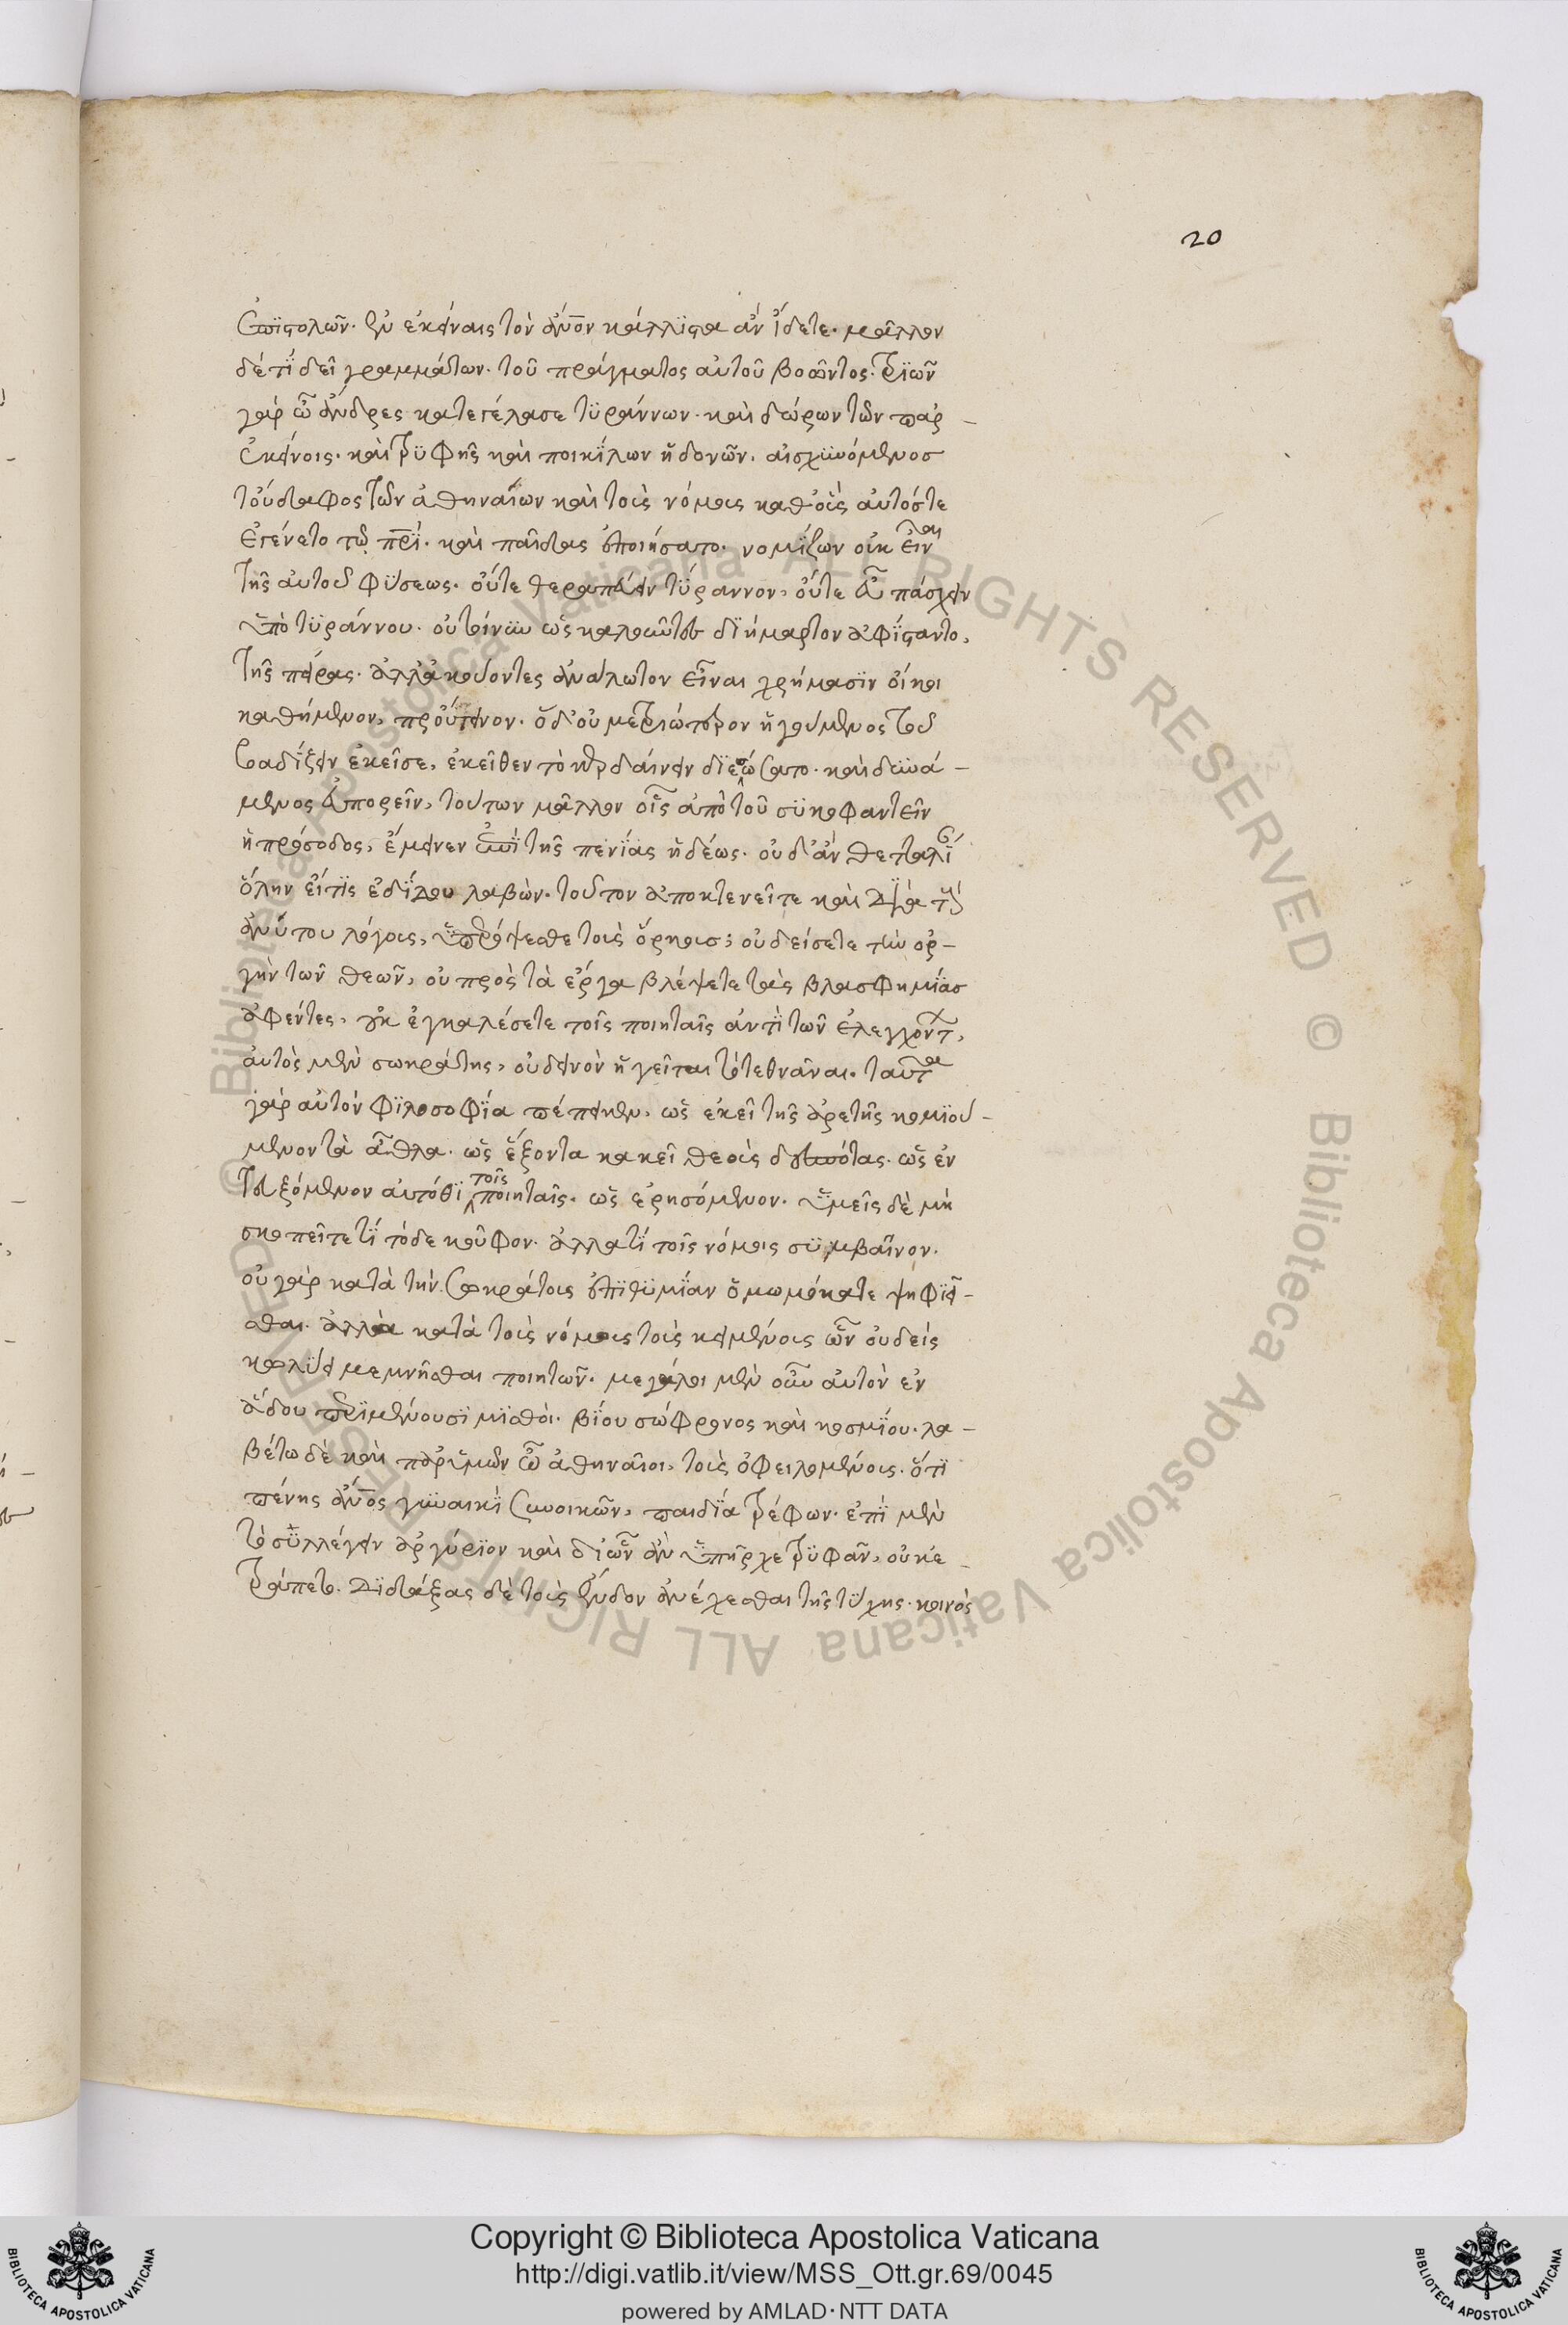 20
ἐπιστολῶν. ἐν ἐκείναις τὸν ἄνον κάλλιστα ἂν ἴδετε. μᾶλλον
δέ τί δεῖ γραμμάτων. τοῦ πράγματος αὐτοῦ βοῶντος. τριῶν
γὰρ ὦ ἄνδρες κατεγέλασε τυράννων. καὶ δώρων τῶν παρ -
ἐκείνοις. καὶ τρυφῆς καὶ ποικίλων ἡδονῶν. αἰσχυνόμενος
τοὔδαφος τῶν ἀθηναίων καὶ τοὺς νόμους καθ' οὓς αὐτός τε
ἐγένετο τῷ πρί. καὶ παῖδας ἐποιήσατο. νομίζων οὐκ εἶναι
τῆς αὐτοῦ φύσεως. οὔτε θεραπεύειν τύραννον, οὔτε εὖ πάσχειν
ὑπὸ τυράννου. οὐ τοίνυν ὡς καλοῦντες διήμαρτον ἀφίσταντο,
τῆς πείρας. ἀλλ' ἀκούοντες ἀνάλωτον εἶναι χρήμασιν οἴκοι
καθήμενον, προὔτεινον. ὁ δ' οὐ μετριώτερον ἡγούμενος τοῦ
βαδίζειν ἐκεῖσε, ἐκεῖθεν τὸ κερδαίνειν διεώσατο. καὶ δυνά -
μενος εὐπορεῖν, τούτων μᾶλλον οἷς ἀπὸ τοῦ συκοφαντεῖν
ἡ πρόσοδος, ἔμεινεν ἐπὶ τῆς πενίας ἡδέως. οὐδ' ἂν θετταλί
ὅλην εἴ τις ἐδίδου λαβών. τοῦτον ἀποκτενεῖτε καὶ διὰ τοὺς
ἀνύτου λόγους, ὑπερόψεσθε τοὺς ὅρκους; οὐ δείσετε τὴν ὀρ -
γὴν τῶν θεῶν, οὐ πρὸς τὰ ἔργα βλέψετε τὰς βλασφημίας
ἀφέντες, οὐκ ἐγκαλέσετε τοῖς ποιηταῖς ἀντὶ τῶν ἐλεγχόντ,
αὐτὸς μὲν σωκράτης, οὐ δεινὸν ἡγεῖται τὸ τεθνᾶναι. ταῦτα
γὰρ αὐτὸν φιλοσοφία πέπεικεν, ὡς ἐκεῖ τῆς ἀρετῆς κομιού -
μενον τὰ ἆθλα. ὡς ἕξοντα κακεῖ θεοὺς δεσπότας. ὡς ἐν
τευξόμενον αὐτόθι τοῖς ποιηταῖς. ὡς ἐρησόμενον. ὑμεῖς δὲ μὴ
σκοπεῖτε τί τόδε κοῦφον. ἀλλὰ τί τοῖς νόμοις συμβαῖνον.
οὐ γὰρ κατὰ τὴν σωκράτους ἐπιθυμίαν ὀμωμόκατε ψηφιεῖ -
σθαι. ἀλλὰ κατὰ τοὺς νόμους τοὺς κειμένους ὧν οὐδεὶς
κωλύει μεμνῆσθαι ποιητῶν. μεγάλοι μὲν οὖν αὐτὸν ἐν
ἅδου περιμένουσι μισθοί. βίου σώφρονος καὶ κοσμίου. λα -
βέτω δὲ καὶ παρ' ὑμῶν ὦ ἀθηναῖοι, τοὺς ὀφειλομένους. ὅτι
πένης ἄνος γυναικὶ συνοικῶν, παιδία τρέφων. ἐπὶ μὲν
τὸ συλλέγειν ἀργύριον καὶ δι' ὧν ἂν ὑπῆρχε τρυφᾶν, οὐκ ἐ -
τράπετο. διδάξας δὲ τοὺς ἔνδον ἀνέχεσθαι τῆς τύχης. κοινὸς
© Biblioteca Apostolica Vaticana ALL RIGHTS RESERVED © Biblioteca Apostolica Vaticana ALL RIGHTS RESERVED
Copyright © Biblioteca Apostolica Vaticana
http://digi.vatlib.it/view/MSS_Ott.gr.69/0045
powered by AMLAD·NTT DATA
BIBLIOTECA APOSTOLICA VATICANA
BIBLIOTECA APOSTOLICA VATICANA